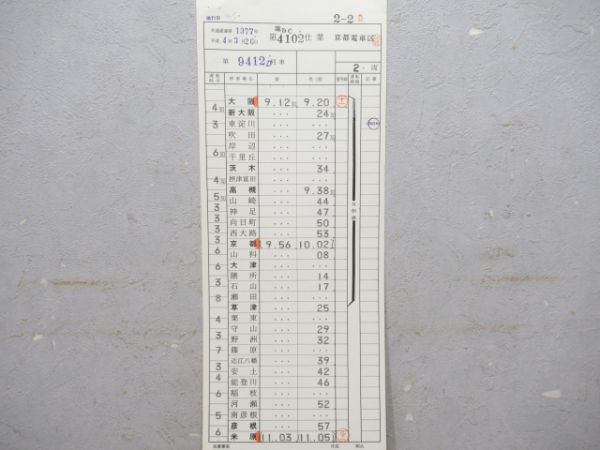 2-2
1377号
4年3月26日
臨DC
第4102仕業 京都電車区
第 9412D 列車
2
停車場名 着 発(通) 記事
大阪 9.12 9.20 十一
4 新大阪 ... 24
3 東淀川 ... ...
吹田 ... 27
岸辺 ... ...
6 千里丘 ... ...
茨木 ... 34
4 摂津富田 ... ...
高槻 ... 9.38
5 山崎 ... 44
3 神足 ... 47
3 向日町 ... 50
3 西大路 ... 53
3 京都 9.56 10.02
6 山科 ... 08
大津 ... ...
6 膳所 ... 14
3 石山 ... 17
瀬田 ... ...
8 草津 ... 25
栗東 ... ...
4 守山 ... 29
3 野洲 ... 32
7 篠原 ... ...
近江八幡 ... 39
3 安土 ... 42
4 能登川 ... 46
稲枝 ... ...
6 河瀬 ... 52
南彦根 ... ...
5 彦根 ... 57
6 米原 11.03 11.05